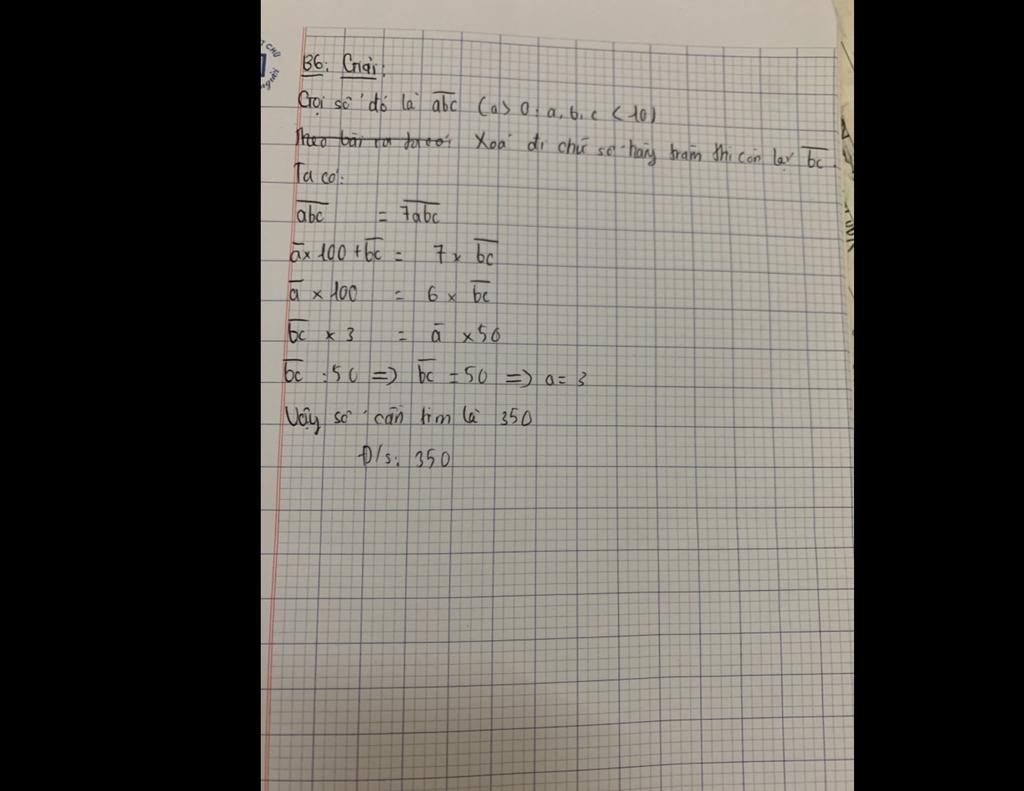 B6: Giải:
Gọi số đó là abc (a > 0; a, b, c < 10)
Theo bài ra ta có: Xoá đi chữ số hàng trăm thì còn lại bc
Ta có:
abc = 7abc
a x 100 + bc = 7 x bc
a x 100 = 6 x bc
bc x 3 = a x 50
bc : 50 => bc = 50 => a = 3
Vậy số cần tìm là 350
Đ/s: 350